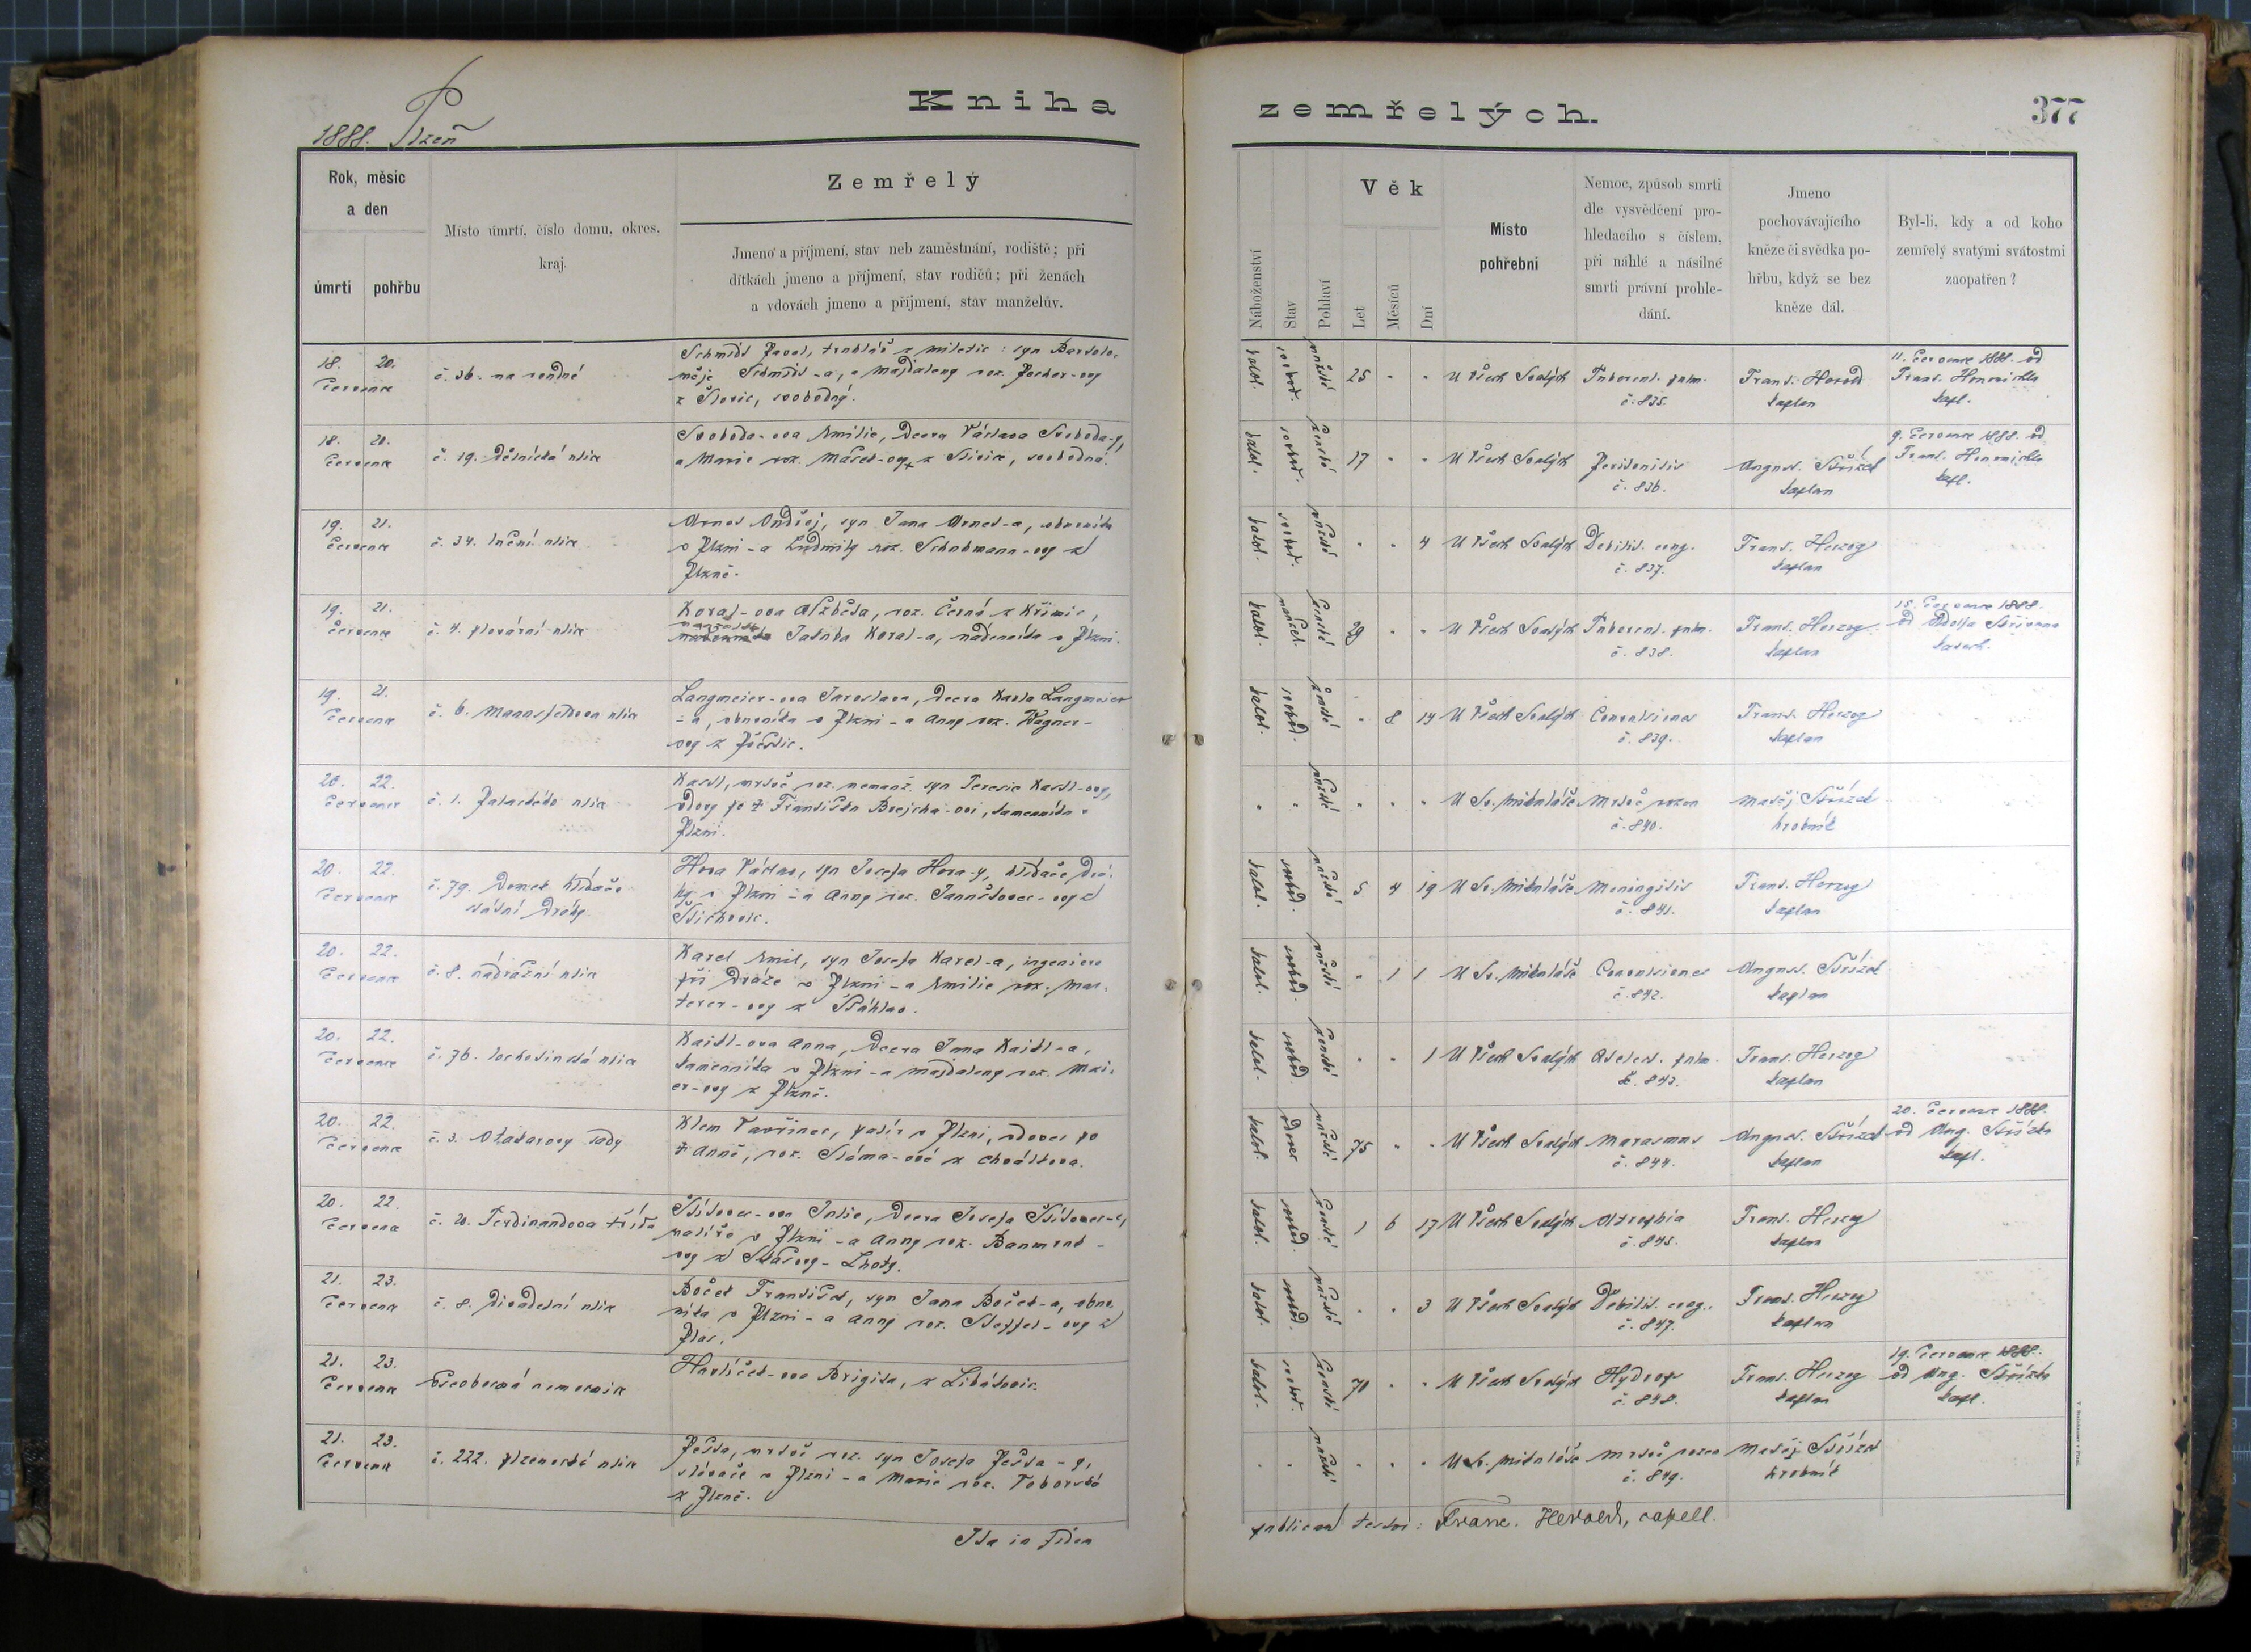 Kniha
zemřelých.
377
1888. Plzeň
Rok, měsíc
a den
úmrtí
pohřbu
Místo úmrtí, číslo domu, okres,
kraj.
Zemřelý
Jmeno a příjmení, stav neb zaměstnání, rodiště; při
dítkách jmeno a příjmení, stav rodičů; při ženách
a vdovách jmeno a příjmení, stav manželův.
Náboženství
Stav
Pohlaví
Věk
Let
Měsíců
Dní
Místo
pohřební
Nemoc, způsob smrti
dle vysvědčení pro-
hledacího s číslem,
při náhlé a násilné
smrti právní prohle-
dání.
Jmeno
pochovávajícího
kněze či svědka po-
hřbu, když se bez
kněze dál.
Byl-li, kdy a od koho
zemřelý svatými svátostmi
zaopatřen?
18. 20.
července
č. 36. na rondné
Schmidt Pavel, truhlář z Miletic: syn Bartolo-
měje Schmidt-a, a Majdaleny roz.
svobodný.
katol. svobod. mužské 25 U Všech Svatých Tubercul. pulm.
č. 835.
Frant. Herold
kaplan
11. července 1888. od
Frant.
kapl.
18. 20.
července
č. 19. Dělnická ulice
Svoboda-ova Emilie, dcera Václava Svoboda-y,
a Marie roz. svobodná.
katol. svobod. ženské 17 U Všech Svatých Peritonitis
č. 836.
August. Střízek
kaplan
9. července 1888. od
Frant.
kapl.
19. 21.
července
č. 34. luční ulice
Arnet Ondřej, syn Jana Arnet-a, obuvníka
v Plzni - a Ludmily roz. Schuhmann-ovy z
Plzně.
katol. svobod. mužské 4 U Všech Svatých Debilit. cong.
č. 837.
Frant. Herzog
kaplan
19. 21.
července
č. 4. plovární ulice
Koral-ova Alžběta, roz. Černá z Křimic,
manželka Jakuba Koral-a, nádeníka v Plzni.
katol. manžel. ženské 29 U Všech Svatých Tubercul. pulm.
č. 838.
Frant. Herzog
kaplan
15. července 1888.
od Adolfa
katech.
19. 21.
července
č. 6. Mannsfeldova ulice
Langmeier-ova Jaroslava, dcera Karla Langmeier
-a, obuvníka v Plzni - a Anny roz. Wagner-
ovy z
katol. svobod. ženské 8 14 U Všech Svatých Convulsiones
č. 839.
Frant. Herzog
kaplan
20. 22.
července
č. 1. Palackého ulice
Kastl, mrtvě roz. nemanž. syn Terezie Kastl-ovy,
vdovy po † Františku Brejcha-ovi, kameníku v
Plzni.
mužské U Sv. Mikuláše Mrtvě rozen
č. 840.
Matěj Střízek
hrobník
20. 22.
července
č. 79. Domek hlídače
státní dráhy.
Hora Václav, syn Josefa Hora-y, hlídače drá-
hy v Plzni - a Anny roz. Januštovec-ovy z
katol. svobod. mužské 5 4 19 U Sv. Mikuláše Meningitis
č. 841.
Frant. Herzog
kaplan
20. 22.
července
č. 8. nádražní ulice
Karel Emil, syn Josefa Karel-a, ingeniera
při dráze v Plzni - a Emilie roz. Mat-
terer-ovy z Šťáhlav.
katol. svobod. mužské 1 1 U Sv. Mikuláše Convulsiones
č. 842.
August. Střízek
kaplan
20. 22.
července
č. 76. lochotínská ulice
Kaitl-ova Anna, dcera Jana Kaitl-a,
kameníka v Plzni - a Majdaleny roz. Mai-
er-ovy z Plzně.
katol. svobod. ženské 1 U Všech Svatých Atelect. pulm.
č. 843.
Frant. Herzog
kaplan
20. 22.
července
č. 3. Otakarovy sady
Klem Vavřinec, pasíř v Plzni, vdovec po
† Anně, roz. Sláma-ové z
katol. vdovec mužské 75 U Všech Svatých Marasmus
č. 844.
August. Střízek
kaplan
20. července 1888.
od Aug. Střízka
kapl.
20. 22.
července
č. 20. Ferdinandova třída
Julie, dcera Josefa
malíře v Plzni - a Anny roz.
ovy z Lhoty.
katol. svobod. ženské 1 6 17 U Všech Svatých Atrophia
č. 845.
Frant. Herzog
kaplan
21. 23.
července
č. 8. Divadelní ulice
Boček František, syn Jana Boček-a, obuv-
níka v Plzni - a Anny roz. Steffel-ovy z
Plas.
katol. svobod. mužské 3 U Všech Svatých Debilit. cong.
č. 847.
Frant. Herzog
kaplan
21. 23.
července
Všeobecná nemocnice
Havlíček-ova Brigita, z Libákovic.
katol. svobod. ženské 70 U Všech Svatých Hydrops
č. 848.
Frant. Herzog
kaplan
19. července 1888.
od Aug. Střízka
kapl.
21. 23.
července
č. 222. plzenecká ulice
Pešta, mrtvě roz. syn Josefa Pešta-y,
slévače v Plzni - a Marie roz. Toborská
z Plzně.
mužské U Sv. Mikuláše Mrtvě rozen
č. 849.
Matěj Střízek
hrobník
Ita in fidem
publicam testor: Franc. Herold, capell.